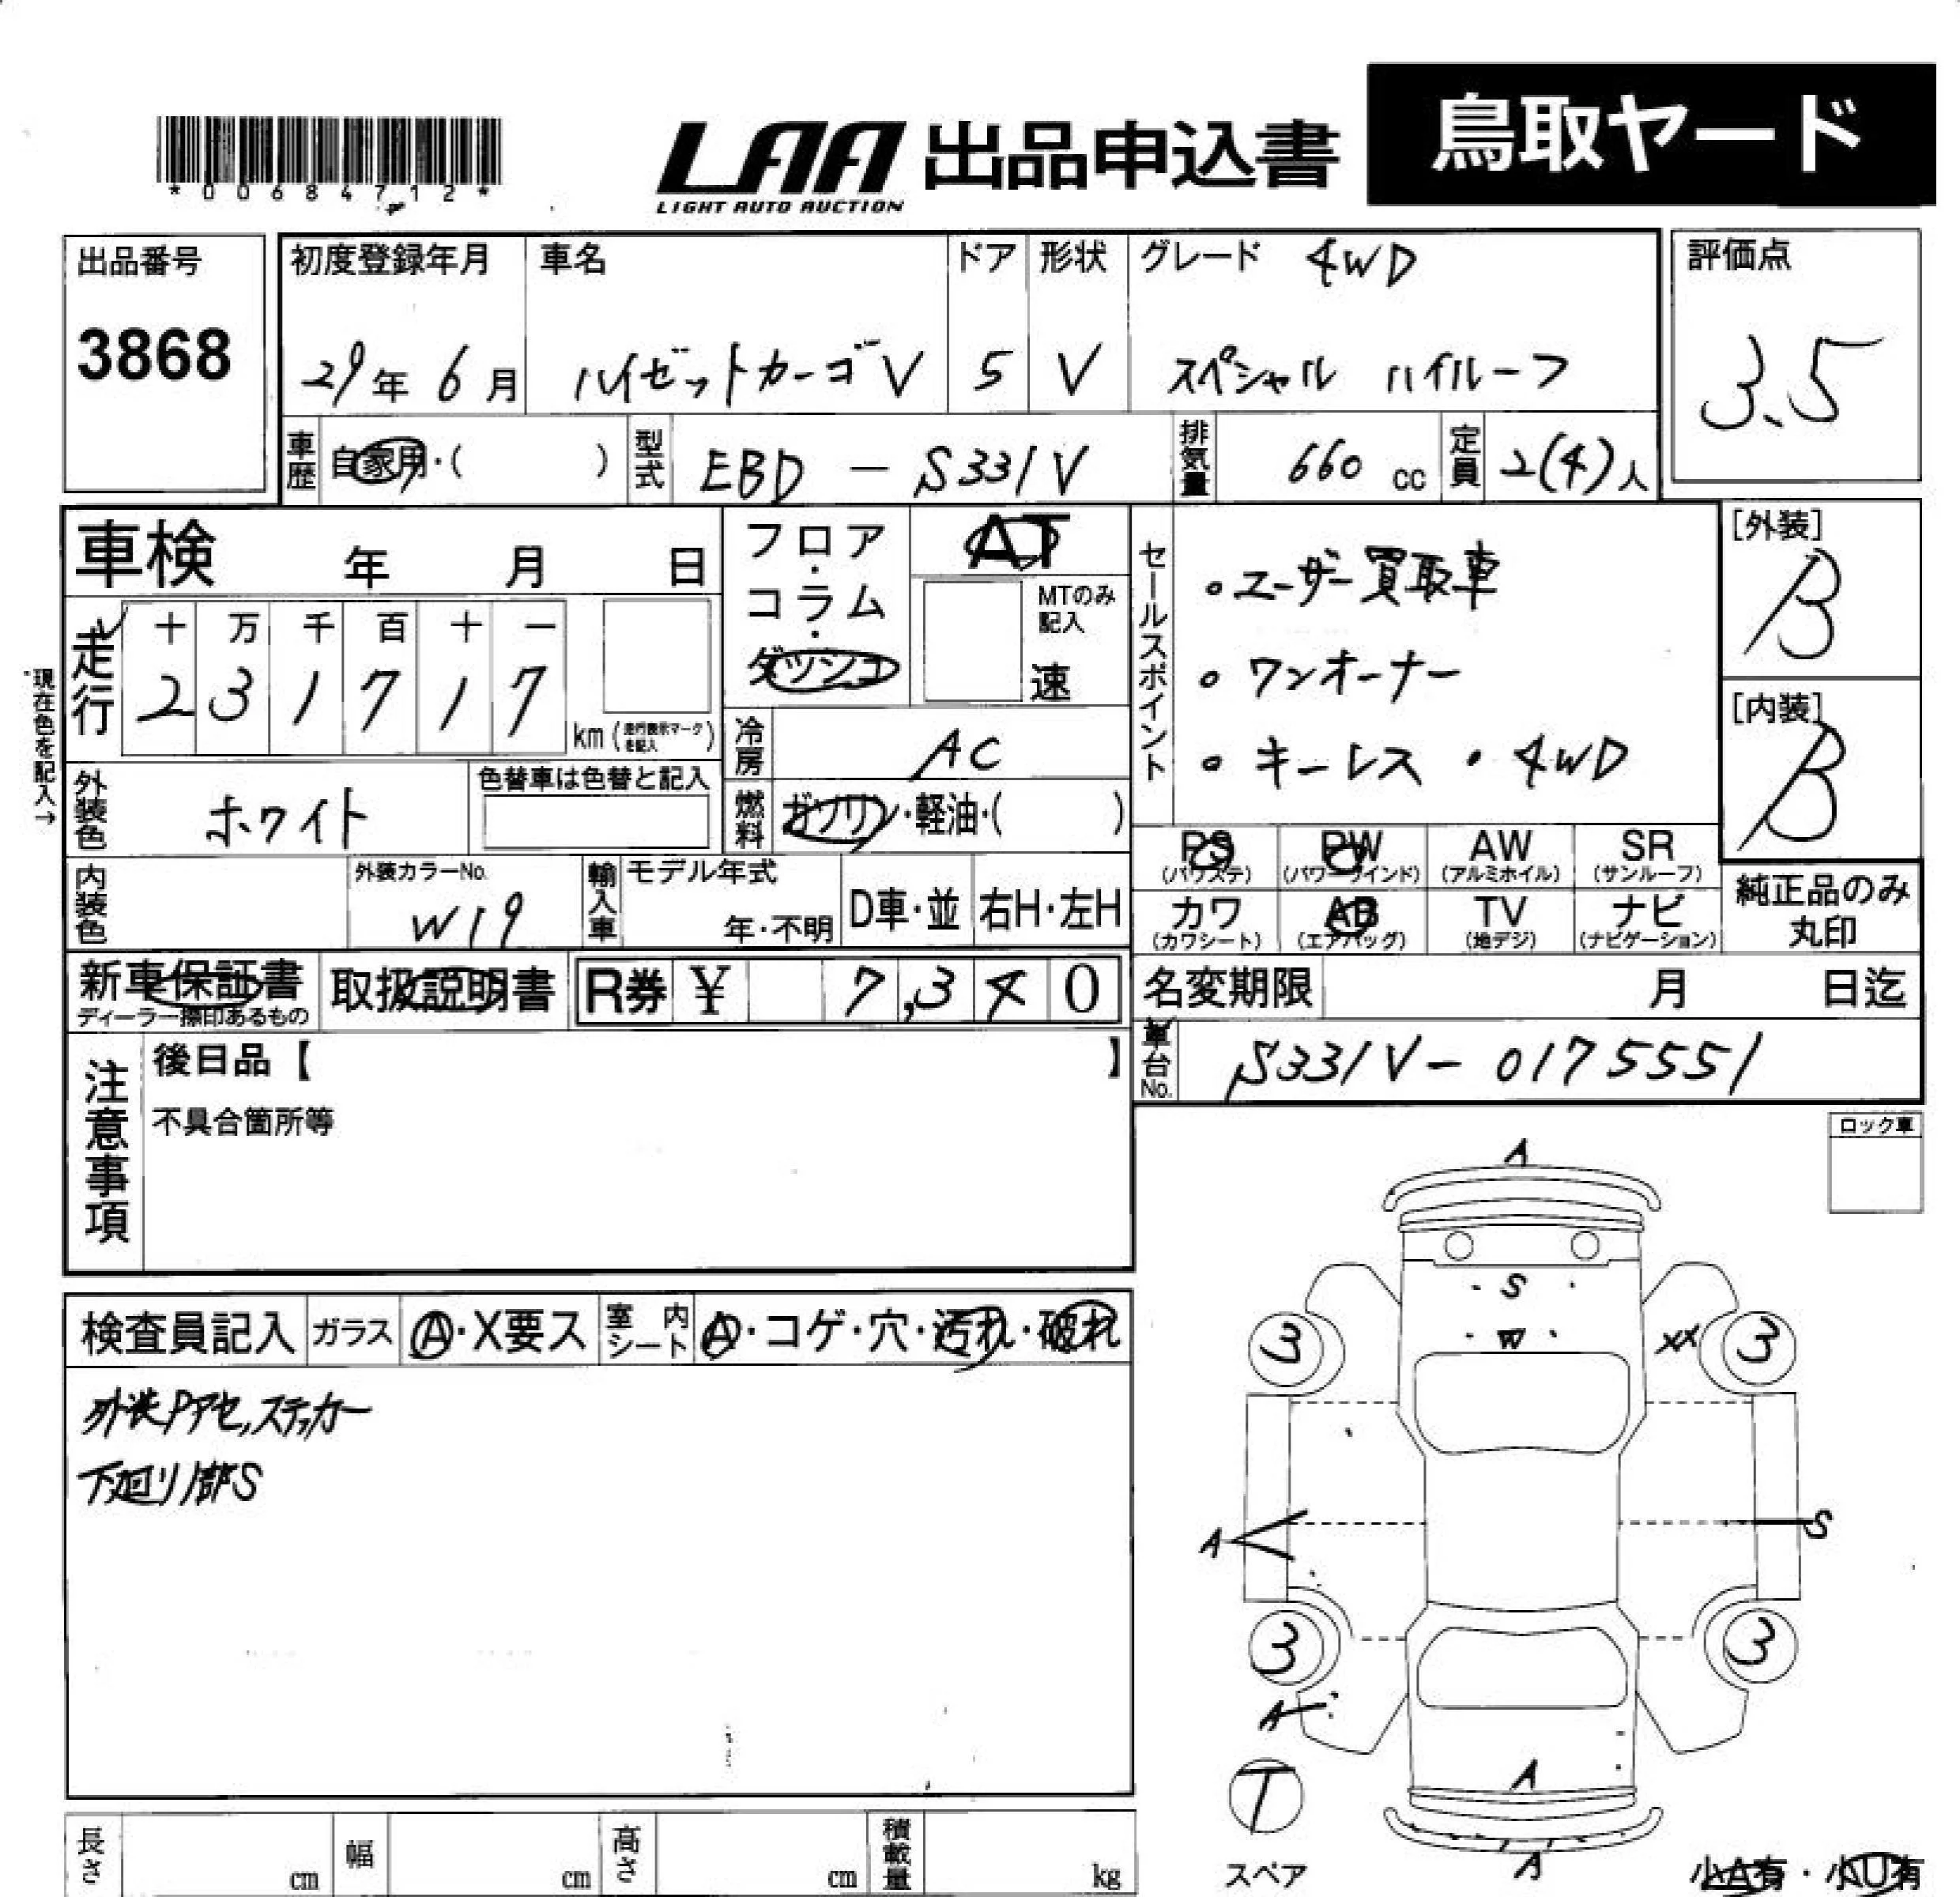 *00684712*
LAA 出品申込書 鳥取ヤード
LIGHT AUTO AUCTION
出品番号 初度登録年月 車名 ドア 形状 グレード 4WD 評価点
3868 29年 6月 ハイゼットカーゴV 5 V スペシャル ハイルーフ 3.5
車歴 自家用・( ) 型式 EBD - S331V 排気量 660 cc 定員 2(4)人
車検 年 月 日 フロア・コラム・ダッシュ AT
MTのみ記入 速
走行 十 万 千 百 十 一
2 3 1 7 1 7 km (走行表示マークを記入)
現在色を記入→
冷房 AC
外装色 ホワイト 色替車は色替と記入 燃料 ガソリン・軽油・( )
内装色 外装カラーNo. W19 輸入車 モデル年式 年・不明 D車・並 右H・左H
セールスポイント
。ユーザー買取車
。ワンオーナー
。キーレス ・4WD
[外装]
B
[内装]
B
PS PW AW SR
(パワステ) (パワーウインド) (アルミホイル) (サンルーフ)
カワ AB TV ナビ
(カワシート) (エアバッグ) (地デジ) (ナビゲーション)
純正品のみ
丸印
新車保証書 取扱説明書 R券 ¥ 7,340 名変期限 月 日迄
ディーラー捺印あるもの
車台No. S331V- 0175551
注意事項 後日品【 】
不具合箇所等
ロック車
検査員記入 ガラス A・X要ス 室内シート A・コゲ・穴・汚れ・破れ
外装Pアセ,ステッカー
下廻リ1部S
A
S
W
3 XX 3
A S
3 3
A
A
T
スペア A 小A有・小U有
長さ cm 幅 cm 高さ cm 積載量 kg